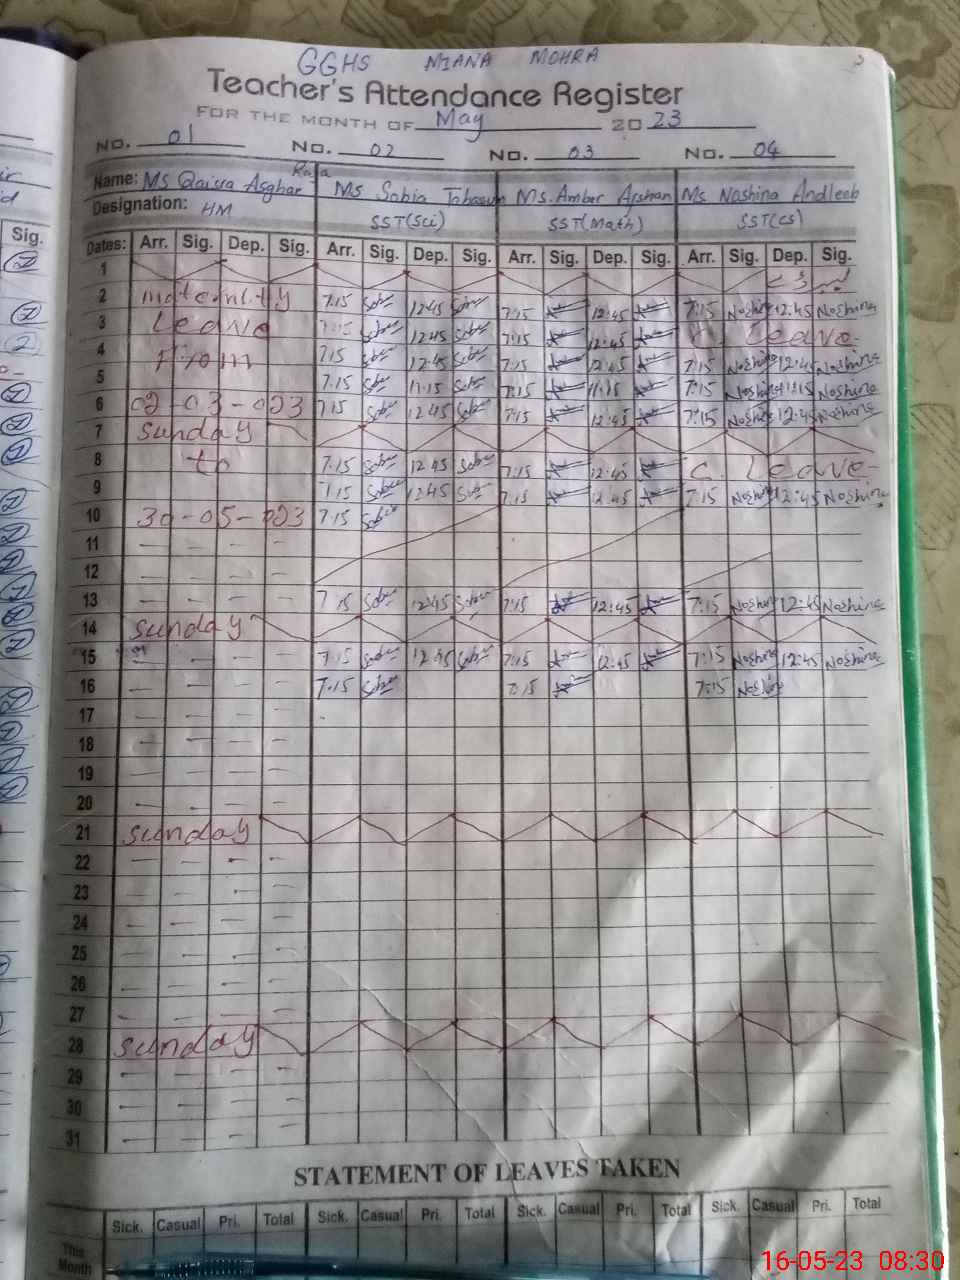 GGHS MIANA MOHRA
Teacher's Attendance Register
FOR THE MONTH OF May 2023
No. 01 No. 02 No. 03 No. 04
Name: Ms Qaisra Asghar Raja Ms Sobia Tabasum Ms. Amber Arshan Ms Noshina Andleeb
Designation: HM SST(Sci) SST(Math) SST(CS)
Dates: Arr. Sig. Dep. Sig. Arr. Sig. Dep. Sig. Arr. Sig. Dep. Sig. Arr. Sig. Dep. Sig.
1
2 maternity 7:15 12:45 7:15 12:45 7:15 Noshina 12:45 Noshina
3 Leave 7:15 12:45 7:15 12:45 C. Leave
4 From 7:15 12:45 7:15 12:45 7:15 Noshina 12:45 Noshina
5 7:15 11:15 7:15 11:15 7:15 Noshina 11:15 Noshina
6 02-03-023 7:15 12:45 7:15 12:45 7:15 Noshina 12:45 Noshina
7 Sunday
8 to 7:15 12:45 7:15 12:45 C. Leave
9 7:15 12:45 7:15 12:45 7:15 Noshina 12:45 Noshina
10 30-05-023 7:15
11
12
13 7:15 12:45 7:15 12:45 7:15 Noshina 12:45 Noshina
14 Sunday
15 7:15 12:45 7:15 12:45 7:15 Noshina 12:45 Noshina
16 7:15 7:15 7:15 Noshina
17
18
19
20
21 Sunday
22
23
24
25
26
27
28 Sunday
29
30
31
STATEMENT OF LEAVES TAKEN
Sick. Casual Pri. Total Sick. Casual Pri. Total Sick. Casual Pri. Total Sick. Casual Pri. Total
This Month
16-05-23 08:30
Sig.